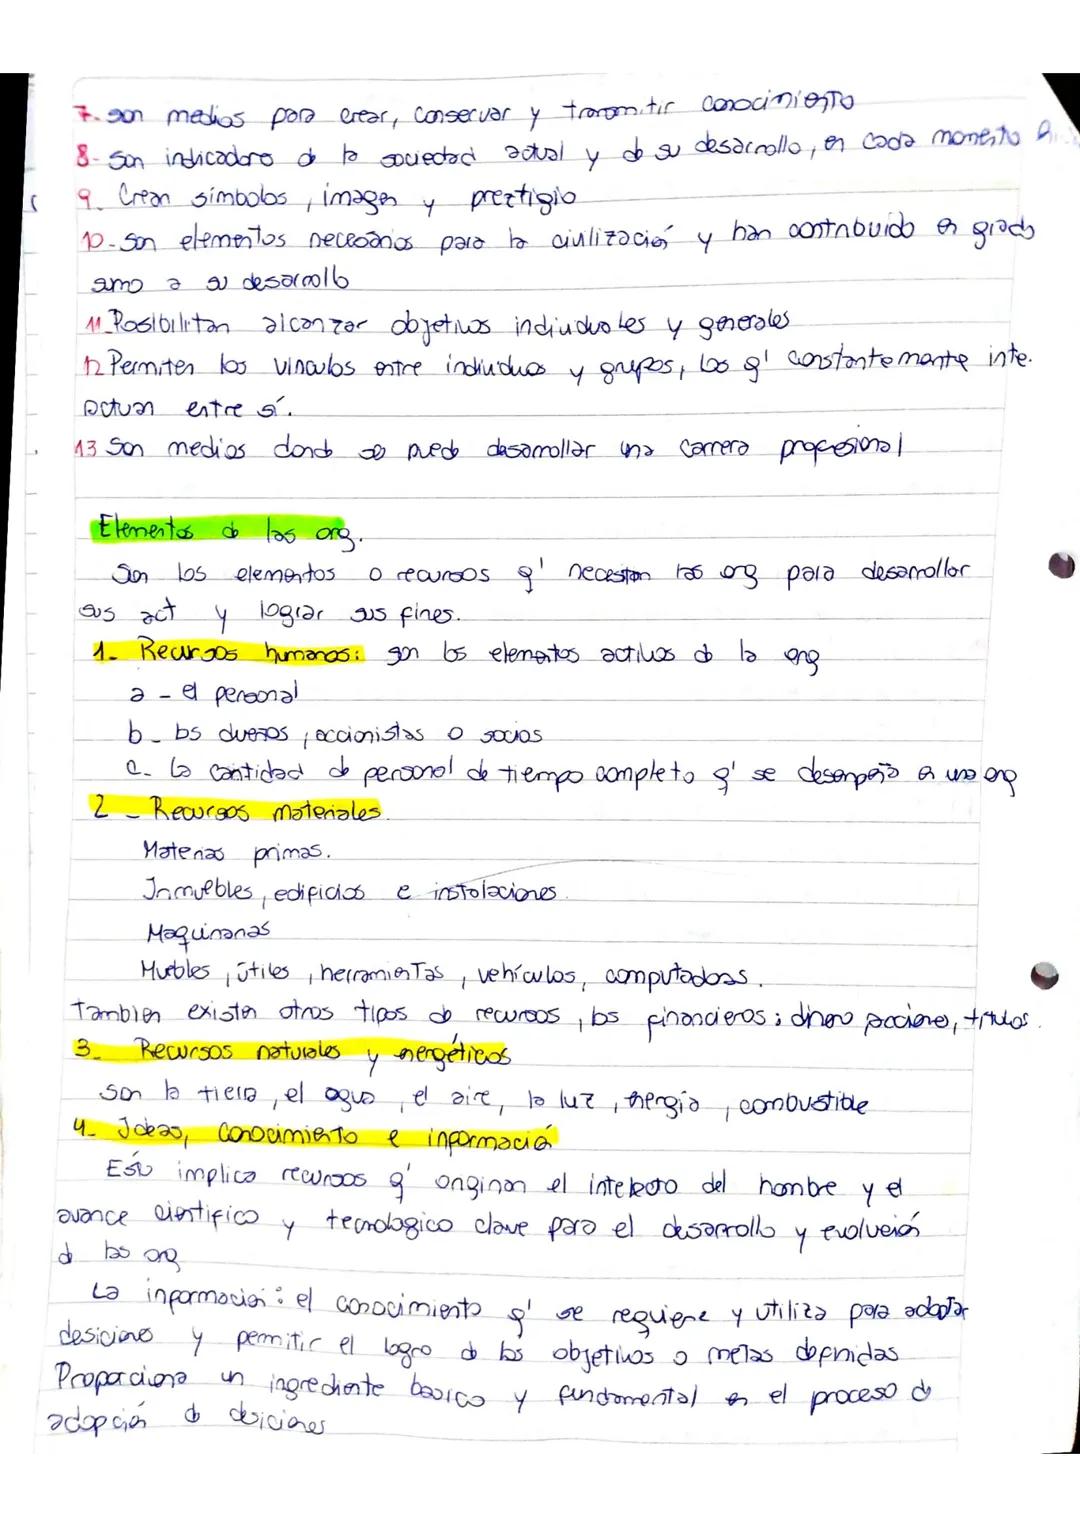 7. son medios para crear, conservar y transmitir conocimiento
8- Son indicadores de la sociedad actual y de su desarrollo, en cada momento
9_ Crean símbolos, imagen y preztigio
10-son elementos necesarios para la civilización y han contribuido en grado
sumo a su desarrollo
11_Posibilitan alcanzar objetivos individuales y generales
12 Permiten los vinculos entre individuos y grupos, los q' constantemente inte.
actuan entre sí.
13 Son medios donde se puede desarrollar una carrera profesional
Elementos de las org.
Son los elementos o recursos q' necesitan las org para desarrollar
sus act y lograr sus fines.
1- Recursos humanos: son los elementos activos de la org
a - el personal
b_ los dueños, accionistas o socios
c- la cantidad de personal de tiempo completo q' se desempeña en una org
2 _ Recursos materiales.
Materias primas.
Inmuebles, edificios e instalaciones.
Maquinarias
Muebles, útiles, herramientas, vehículos, computadoras.
Tambien existen otros tipos de recursos, los financieros; dinero acciones, titulos.
3_ Recursos naturales y energéticos
Son la tierra, el agua, el aire, la luz, energia, combustible
4_ Ideas, conocimiento e información
Esto implica recursos q' originan el intelecto del hombre y el
avance cientifico y tecnologico clave para el desarrollo y evolución
de las org
La información: el conocimiento q' se requiere y utiliza para adoptar
desiciones y permitir el logro de los objetivos o metas definidas
Proporciona un ingrediente basico y fundamental en el proceso de
adopción de desiciones